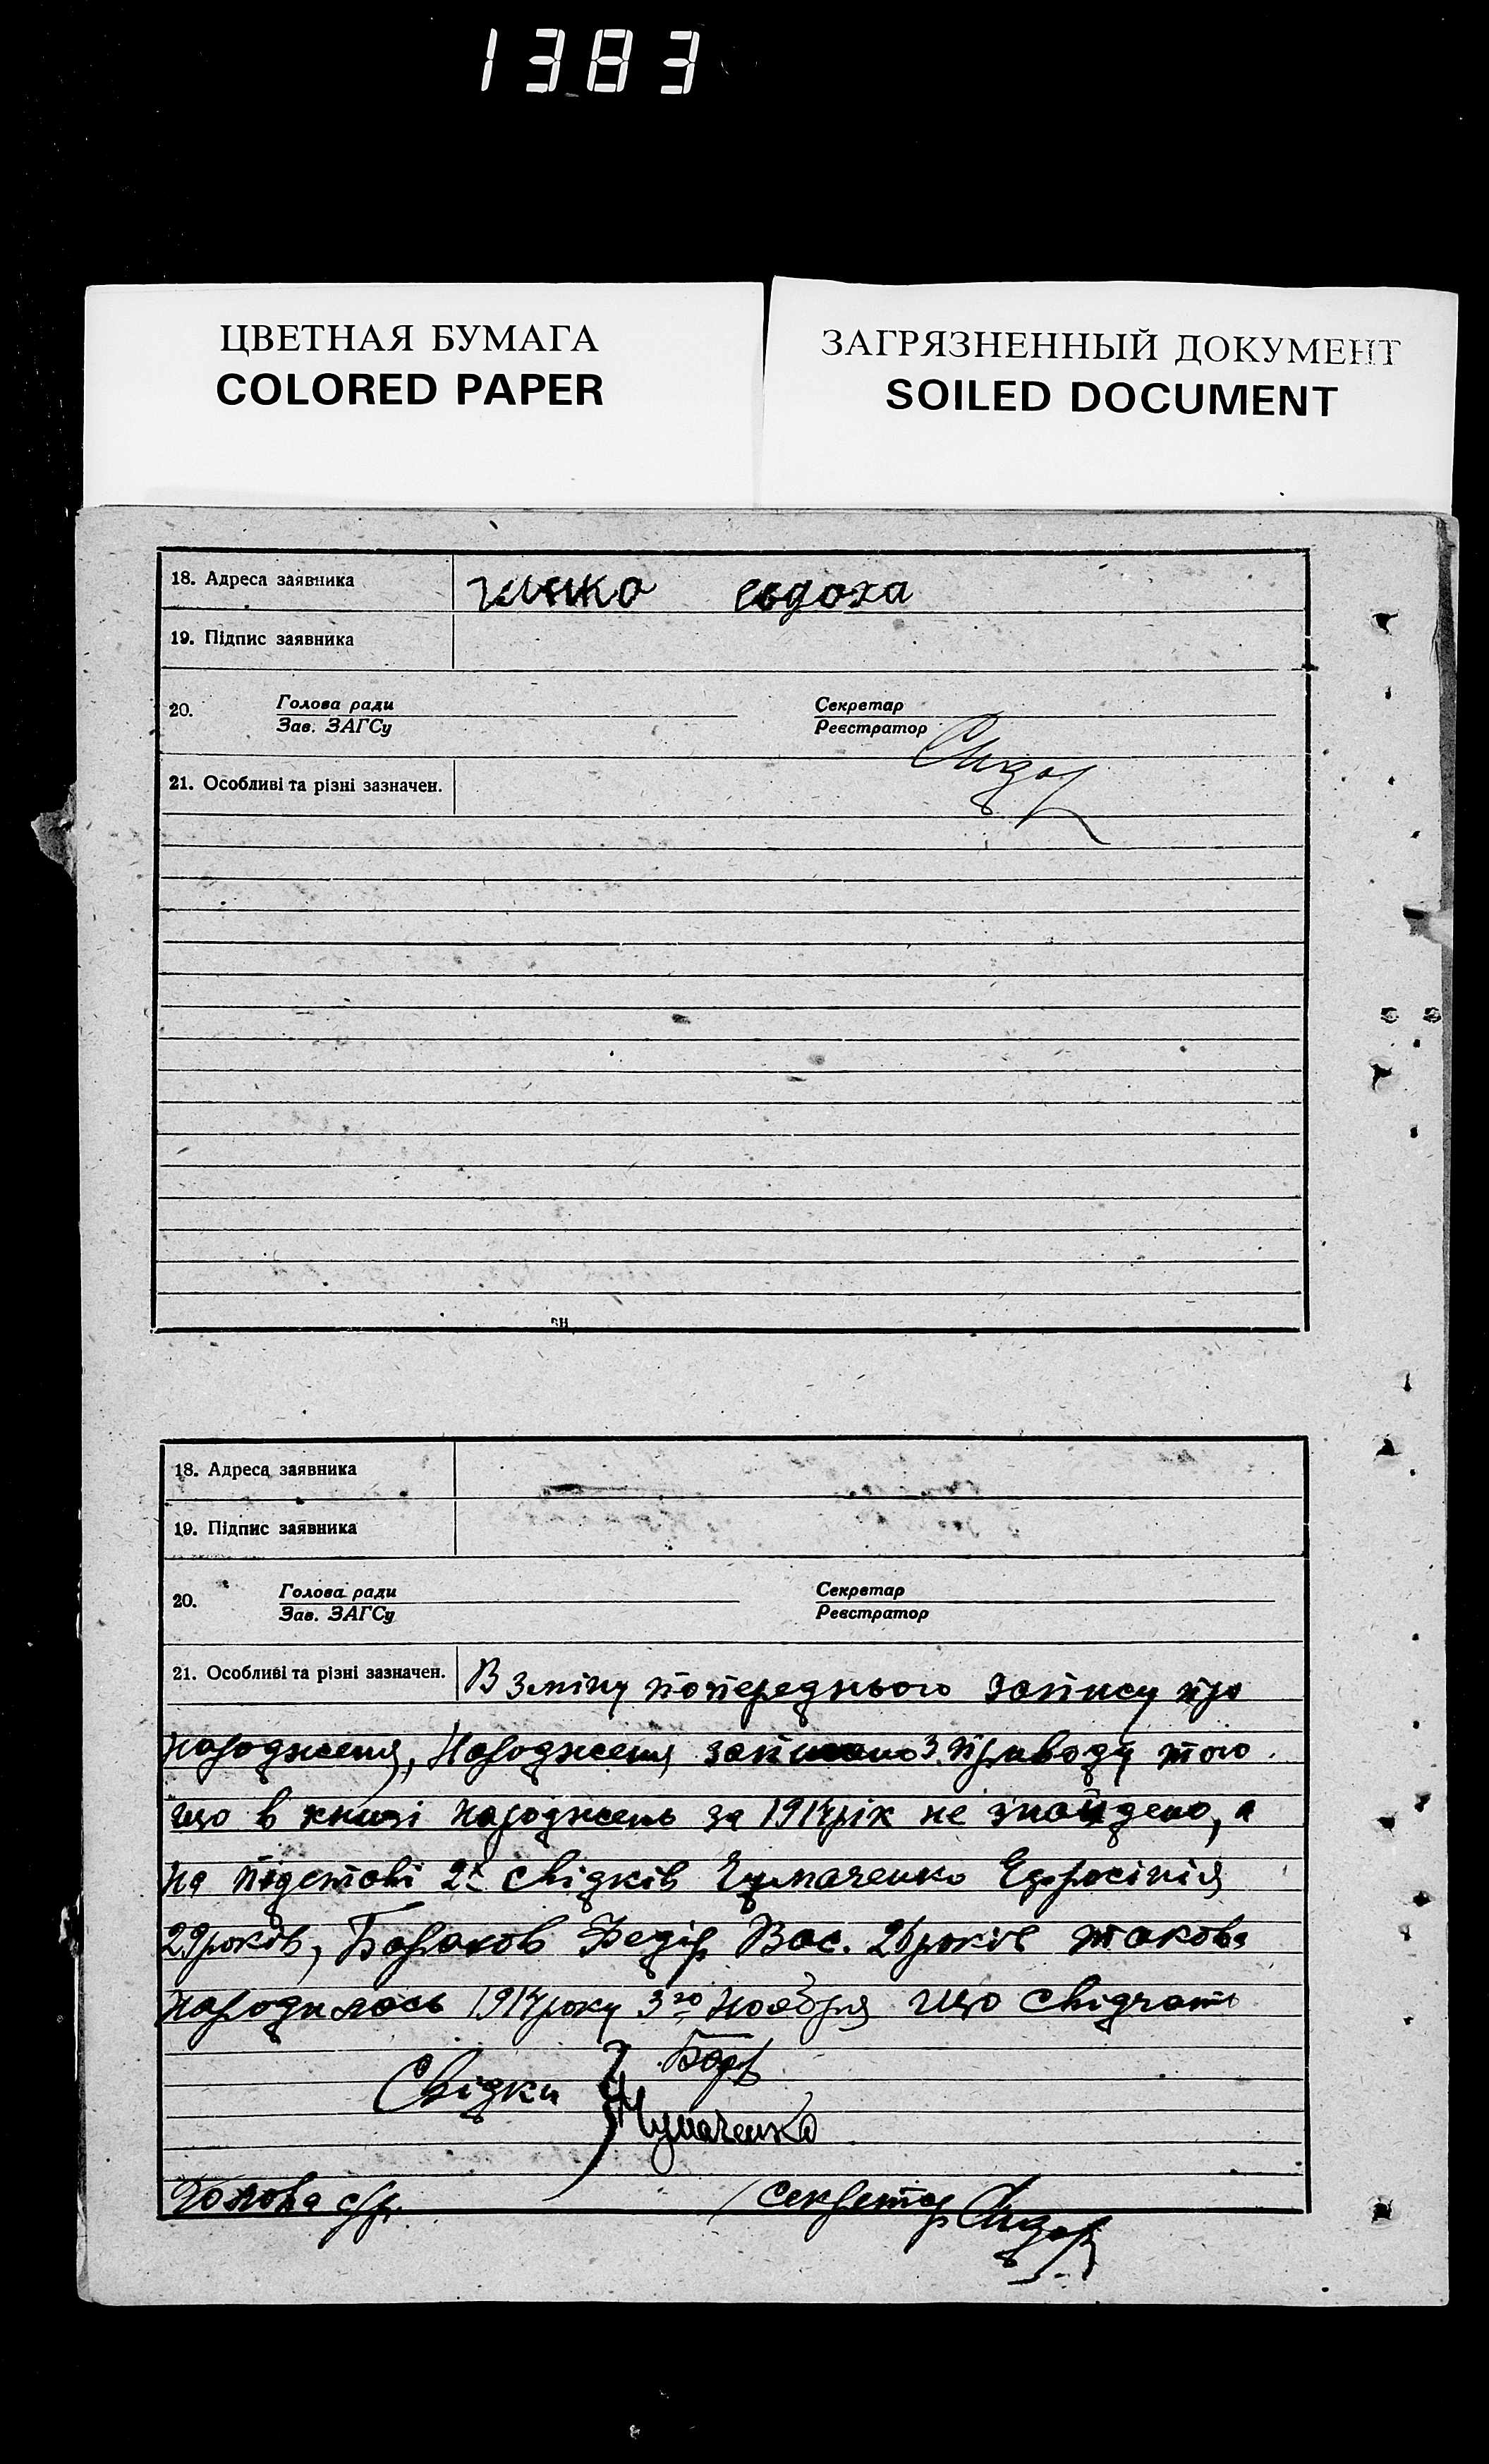 1383
ЦВЕТНАЯ БУМАГА
COLORED PAPER
ЗАГРЯЗНЕННЫЙ ДОКУМЕНТ
SOILED DOCUMENT
18. Адреса заявника евдоха
19. Підпис заявника
20. Голова ради Секретар
Зав. ЗАГСу Реєстратор
21. Особливі та різні зазначен.
18. Адреса заявника
19. Підпис заявника
20. Голова ради Секретар
Зав. ЗАГСу Реєстратор
21. Особливі та різні зазначен. В зміну попереднього запису про
народженя, Народженя записано з приводу того
що в книзі народжень за 1914 рік не знайдено, а
на підставі 2х свідків Чумаченко Ефросінія
29 років, Бараков Федір Вас. 26 років такова
народилась 1914 року 3го ноября що свідчать
Свідки Бар
Чумаченко
Голова с/р. секретар